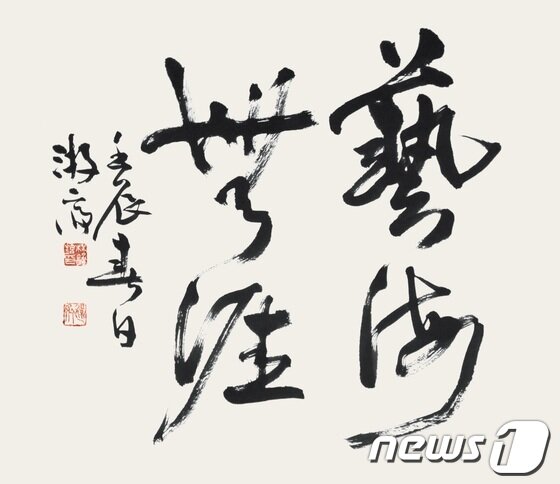 藝海
無涯
壬辰春日
news1